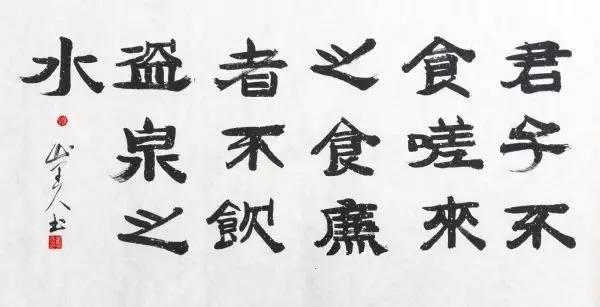 君子不
食嗟來
之食廉
者不飲
盗泉之
水